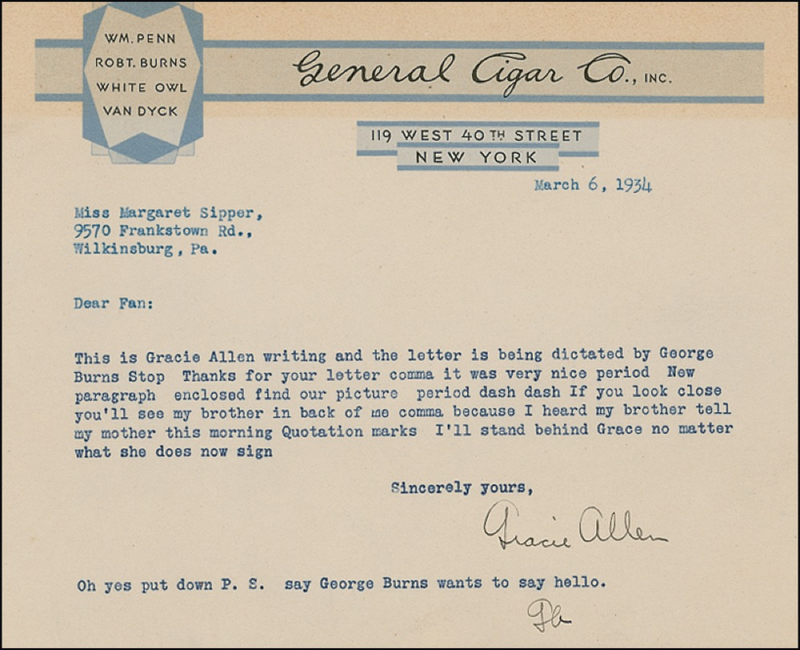 WM. PENN
ROBT. BURNS
WHITE OWL
VAN DYCK
General Cigar Co., INC.
119 WEST 40TH STREET
NEW YORK
March 6, 1934
Miss Margaret Sipper,
9570 Frankstown Rd.,
Wilkinsburg, Pa.
Dear Fan:
This is Gracie Allen writing and the letter is being dictated by George
Burns Stop  Thanks for your letter comma it was very nice period  New
paragraph  enclosed find our picture  period dash dash If you look close
you'll see my brother in back of me comma because I heard my brother tell
my mother this morning Quotation marks  I'll stand behind Grace no matter
what she does now sign
Sincerely yours,
Gracie Allen
Oh yes put down P. S.  say George Burns wants to say hello.